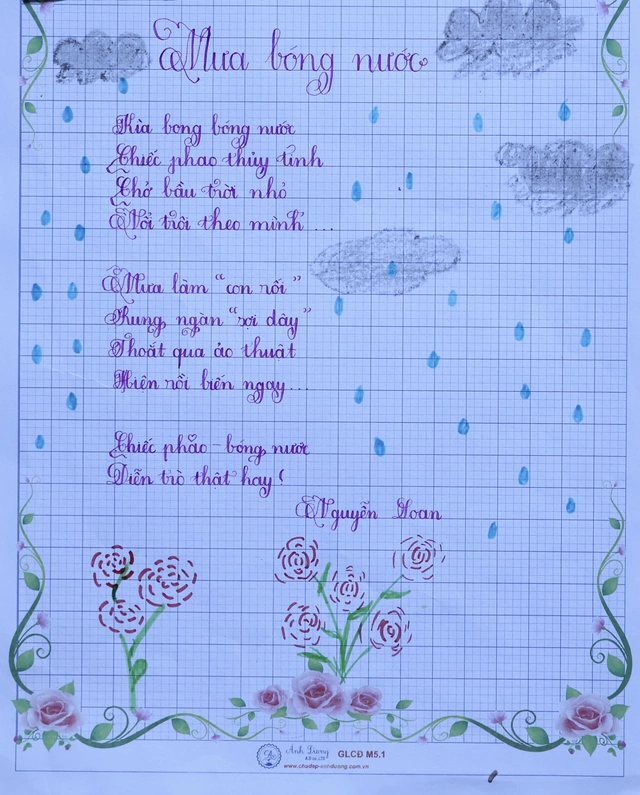 Mưa bóng nước
Kìa bong bóng nước
Chiếc phao thủy tinh
Chở bầu trời nhỏ
Nổi trôi theo mình ...
Mưa làm "con rối"
Rung ngàn "sợi dây"
Thoắt qua ảo thuật
Hiện rồi biến ngay...
Chiếc phao - bóng nước
Diễn trò thật hay!
Nguyễn Hoan
Ánh Dương
GLCĐ M5.1
www.chudep-anhduong.com.vn